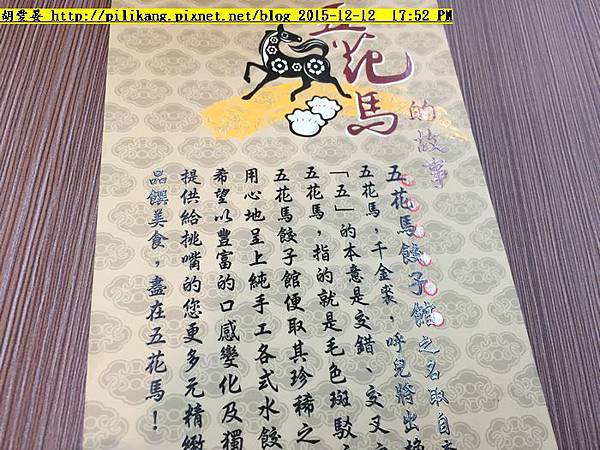 胡愛晏 http://pilikang.pixnet.net/blog 2015-12-12 17:52 PM
五花馬
的故事
五花馬餃子館之名取自
五花馬，千金裘，呼兒將出換
「五」的本意是交錯、交叉
五花馬，指的就是毛色斑駁
五花馬餃子館便取其珍稀之
用心地呈上純手工各式水餃
希望以豐富的口感變化及獨
提供給挑嘴的您更多元精緻
品饌美食，盡在五花馬！